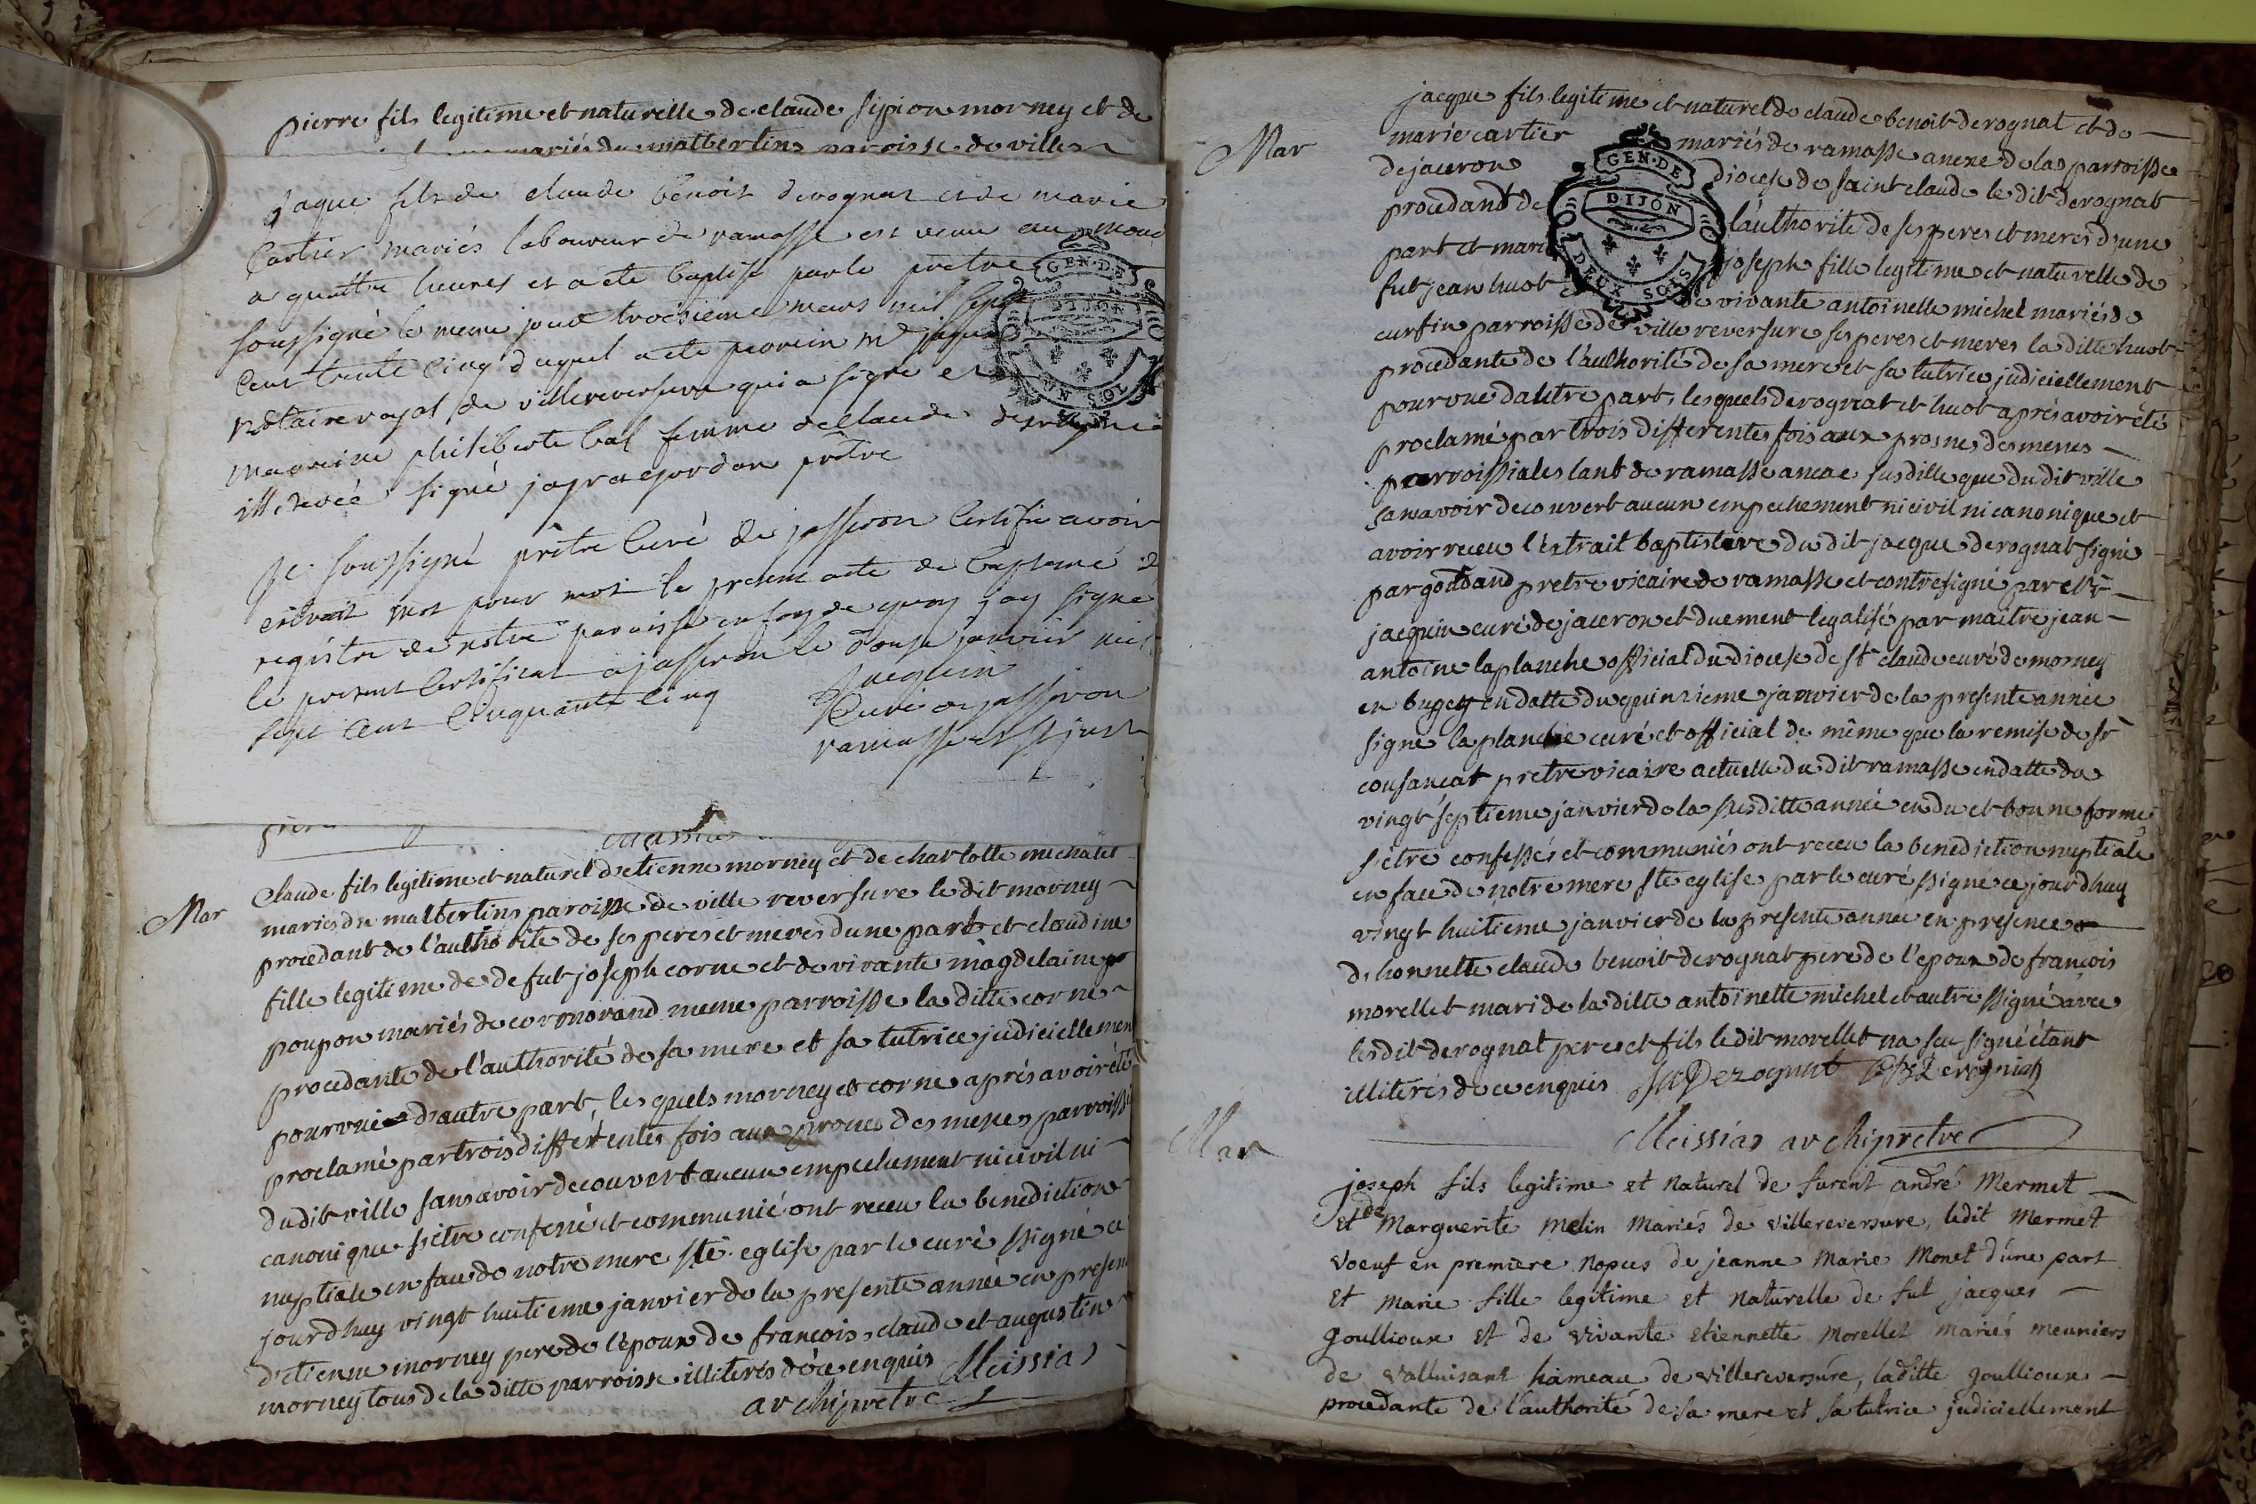 pierre fils legitime et naturelle de claude sipion morney et de
mariés du malbertins paroisse de ville
jaque fils de claude benoit derognat et de marie
Cartier mariés laboureur de ramasse est venu au monde
a quattre heures et a ete baptise par le pretre
soussigné le meme jour troisieme mars mil sept
cent trente cinq duquel a ete parein
notaire royal de villereversure qui a signe et
mareine philiberte bal femme de Claude derognat
illiterée signé prêtre
Je soussigné prêtre curé de jasseron certifie avoir
extrait mot pour mot le present acte de bapteme du
registre de notre paroisse en foy de quoy jay signe
le present certificat a jasseron le douse janvier mil
sept cent cinquante cinq Jacquin
Curé de jasseron
ramasse et st just
GEN. DE
DIJON
UN SOL
Mar
Claude fils legitime et naturel d'etienne morney et de charlotte michalet
mariés du malbertins paroisse de ville reversure le dit morney
procedant de l'authorité de ses peres et meres dune part et claudine
fille legitime de defut joseph corne et de vivante magdelaine
poupon mariés de coronorand meme parroisse la ditte corne
procedante de l'authorité de sa mere et sa tutrice judiciellement
pourvue d'autre part, lesquels morney et corne aprés avoir été
proclamé par trois differentes fois aux prones des messes parroissi
du dit ville sans avoir decouvert aucun empechement ni civil ni
canonique s'etre confessé et communié ont receu la benediction
nuptiale en face de notre mere ste eglise par le curé ssigné ce
jourdhuy vingt huitieme janvier de la presente année en presen
d'etienne morney pere de l'epoux de françois, claude et augustin
morney tous de la ditte parroisse illiterés de ce enquis Meissias
archipretre
Mar
jacque fils legitime et naturel de claude benoit derognat et de
marie cartier mariés de ramasse anexe de la parroisse
de jaceron diocese de saint claude le dit derognat
procedant de l'authorité de ses peres et meres d'une
part et marie joseph fille legitime et naturelle de
fut jean huot de vivante antoinette michel mariés de
curfin parroisse de ville reversure ses peres et meres la ditte huot
procedante de l'authorité de sa mere et sa tutrice judiciellement
pourvue dautre part, lesquels derognat et huot aprés avoir été
proclamé par trois differentes fois aux prosnes des messes
parroissiales tant de ramasse anexe susditte que du dit ville
sans avoir decouvert aucun empechement ni civil ni canonique et
avoir receu l'extrait baptistere du dit jacque derognat signé
par pretre vicaire de ramasse et contresigné par
jacquin curé de jaceron et duement legalisé par maitre jean
antoine laplanche official du diocese de st claude curé de morney
en bugey en datte du quinzieme janvier de la presente année
signé laplanche curé et official de même que la remise de sr
cousançat pretre vicaire actuelle du dit ramasse en datte du
vingt septieme janvier de la susditte année en du et bonne forme
s'etre confessés et communiés ont receu la benediction nuptiale
en face de notre mere ste eglise par le curé ssigné ce jourdhuy
vingt huitieme janvier de la presente année en presence
d'honnette claude benoit derognat pere de l'epoux de françois
morellet mari de la ditte antoinette michel et autre ssigné avec
lesdit derognat pere et fils le dit morellet na seu signé étant
illiterés de ce enquis
Meissias archipretre
GEN. DE
DIJON
DEUX SOLS
Mar
joseph fils legitime et naturel de furent andré Mermet
et de Marguerite Melin mariés de villereversure, ledit Mermet
voeuf en premiere nopces de jeanne Marie Monet d'une part
et marie fille legitime et naturelle de fut jacques
goullioux et de vivante etiennette Morellet mariés meuniers
de valluisant hameau de villereversure, laditte goullioux
procedante de l'authorité de sa mere et sa tutrice judiciellement